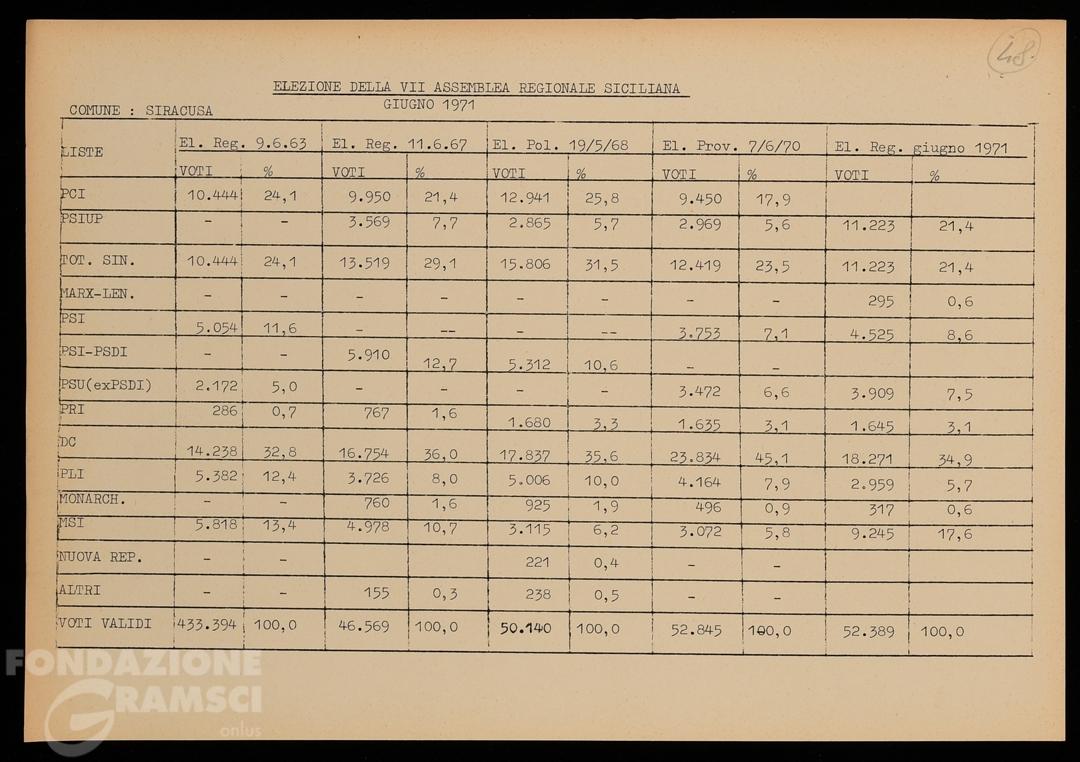 48.
ELEZIONE DELLA VII ASSEMBLEA REGIONALE SICILIANA
GIUGNO 1971
COMUNE : SIRACUSA
LISTE El. Reg. 9.6.63 El. Reg. 11.6.67 El. Pol. 19/5/68 El. Prov. 7/6/70 El. Reg. giugno 1971
VOTI % VOTI % VOTI % VOTI % VOTI %
PCI 10.444 24,1 9.950 21,4 12.941 25,8 9.450 17,9
PSIUP - - 3.569 7,7 2.865 5,7 2.969 5,6 11.223 21,4
TOT. SIN. 10.444 24,1 13.519 29,1 15.806 31,5 12.419 23,5 11.223 21,4
MARX-LEN. - - - - - - - - 295 0,6
PSI 5.054 11,6 - -- - -- 3.753 7,1 4.525 8,6
PSI-PSDI - - 5.910 12,7 5.312 10,6 - -
PSU(exPSDI) 2.172 5,0 - - - - 3.472 6,6 3.909 7,5
PRI 286 0,7 767 1,6 1.680 3,3 1.635 3,1 1.645 3,1
DC 14.238 32,8 16.754 36,0 17.837 35,6 23.834 45,1 18.271 34,9
PLI 5.382 12,4 3.726 8,0 5.006 10,0 4.164 7,9 2.959 5,7
MONARCH. - - 760 1,6 925 1,9 496 0,9 317 0,6
MSI 5.818 13,4 4.978 10,7 3.115 6,2 3.072 5,8 9.245 17,6
NUOVA REP. - - 221 0,4 - -
ALTRI - - 155 0,3 238 0,5 - -
VOTI VALIDI 433.394 100,0 46.569 100,0 50.140 100,0 52.845 100,0 52.389 100,0
FONDAZIONE
GRAMSCI
onlus